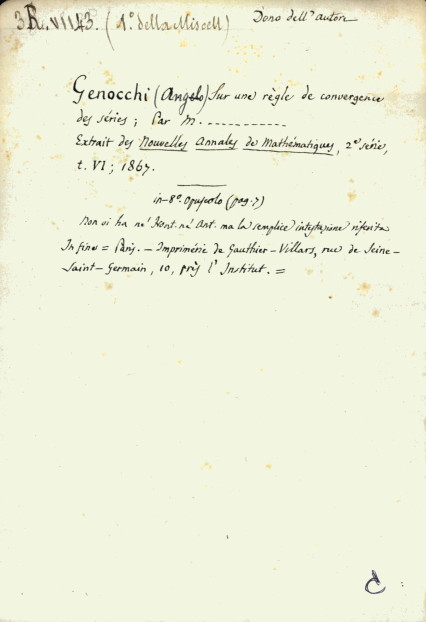 3R.VII.43. (1º della Miscell)
Dono dell' autore
Genocchi (Angelo) Sur une règle de convergence
des séries; Par M. ----------
Extrait des Nouvelles Annales de Mathématiques, 2e série,
t. VI; 1867.
in-8º. Opuscolo (pag. 7)
Non vi ha nè Front. nè Ant. ma la semplice intestazione riferita
In fine = Paris. - Imprimérie de Gauthier-Villars, rue de Seine-
Saint-Germain, 10, près l' Institut. =
C